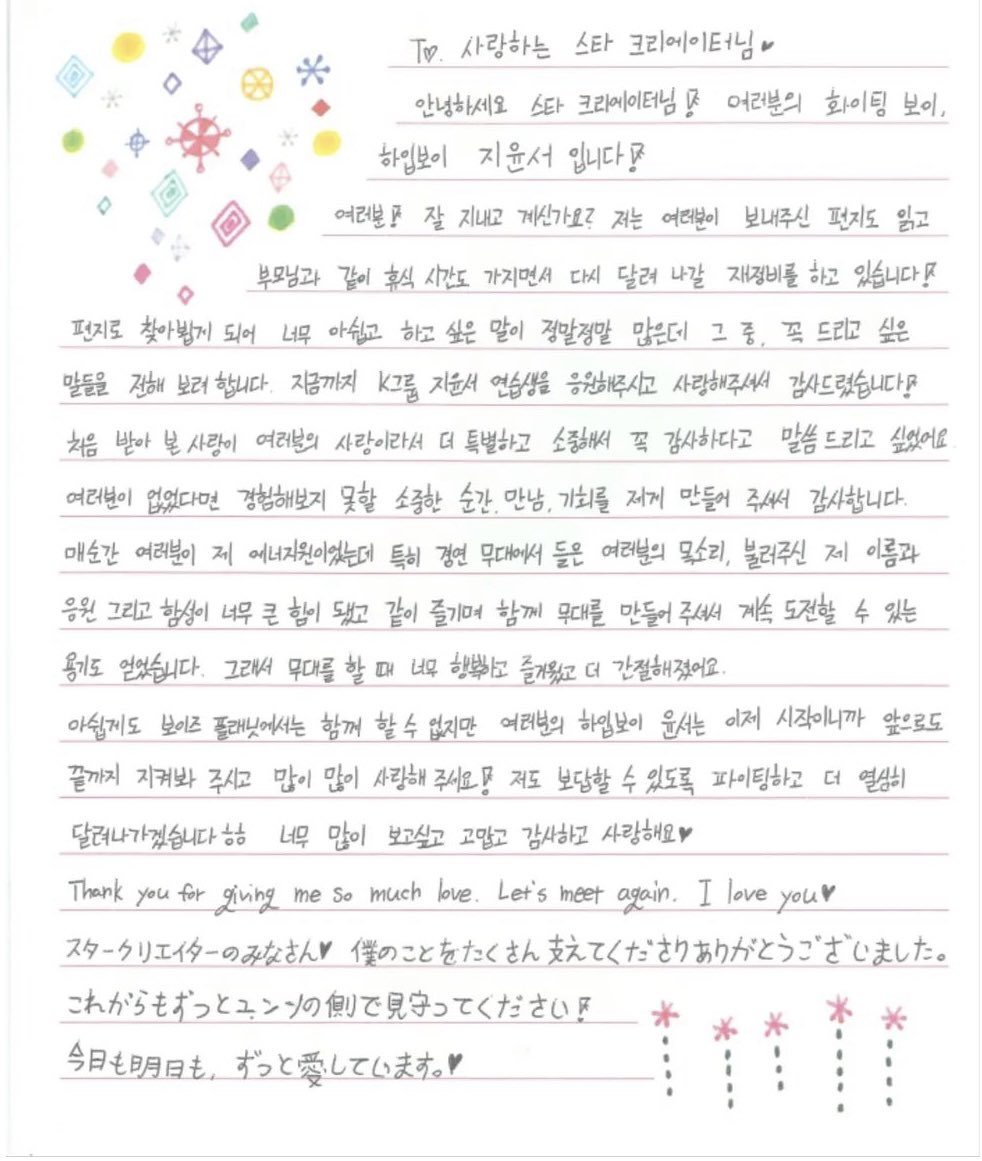 To. 사랑하는 스타 크리에이터님♥
안녕하세요 스타 크리에이터님! 여러분의 화이팅 보이,
하입보이 지윤서 입니다!
여러분! 잘 지내고 계신가요? 저는 여러분이 보내주신 편지도 읽고
부모님과 같이 휴식 시간도 가지면서 다시 달려 나갈 재정비를 하고 있습니다!
편지로 찾아뵙게 되어 너무 아쉽고 하고 싶은 말이 정말정말 많은데 그 중, 꼭 드리고 싶은
말들을 전해 보려 합니다. 지금까지 K그룹 지윤서 연습생을 응원해주시고 사랑해주셔서 감사드렸습니다!
처음 받아 본 사랑이 여러분의 사랑이라서 더 특별하고 소중해서 꼭 감사하다고 말씀 드리고 싶었어요
여러분이 없었다면 경험해보지 못할 소중한 순간, 만남, 기회를 제게 만들어 주셔서 감사합니다.
매순간 여러분이 제 에너지원이었는데 특히 경연 무대에서 들은 여러분의 목소리, 불러주신 제 이름과
응원 그리고 함성이 너무 큰 힘이 됐고 같이 즐기며 함께 무대를 만들어 주셔서 계속 도전할 수 있는
용기도 얻었습니다. 그래서 무대를 할 때 너무 행복하고 즐거웠고 더 간절해졌어요.
아쉽게도 보이즈 플래닛에서는 함께 할 수 없지만 여러분의 하입보이 윤서는 이제 시작이니까 앞으로도
끝까지 지켜봐 주시고 많이 많이 사랑해 주세요! 저도 보답할 수 있도록 파이팅하고 더 열심히
달려나가겠습니다ㅎㅎ 너무 많이 보고싶고 고맙고 감사하고 사랑해요♥
Thank you for giving me so much love. Let's meet again. I love you♥
スタークリエイターのみなさん♥ 僕のことをたくさん支えてくださりありがとうございました。
これからもずっとユンソの側で見守ってください!
今日も明日も, ずっと愛しています。♥